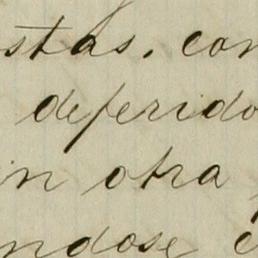 stas. con
deferido
in otra
ndose